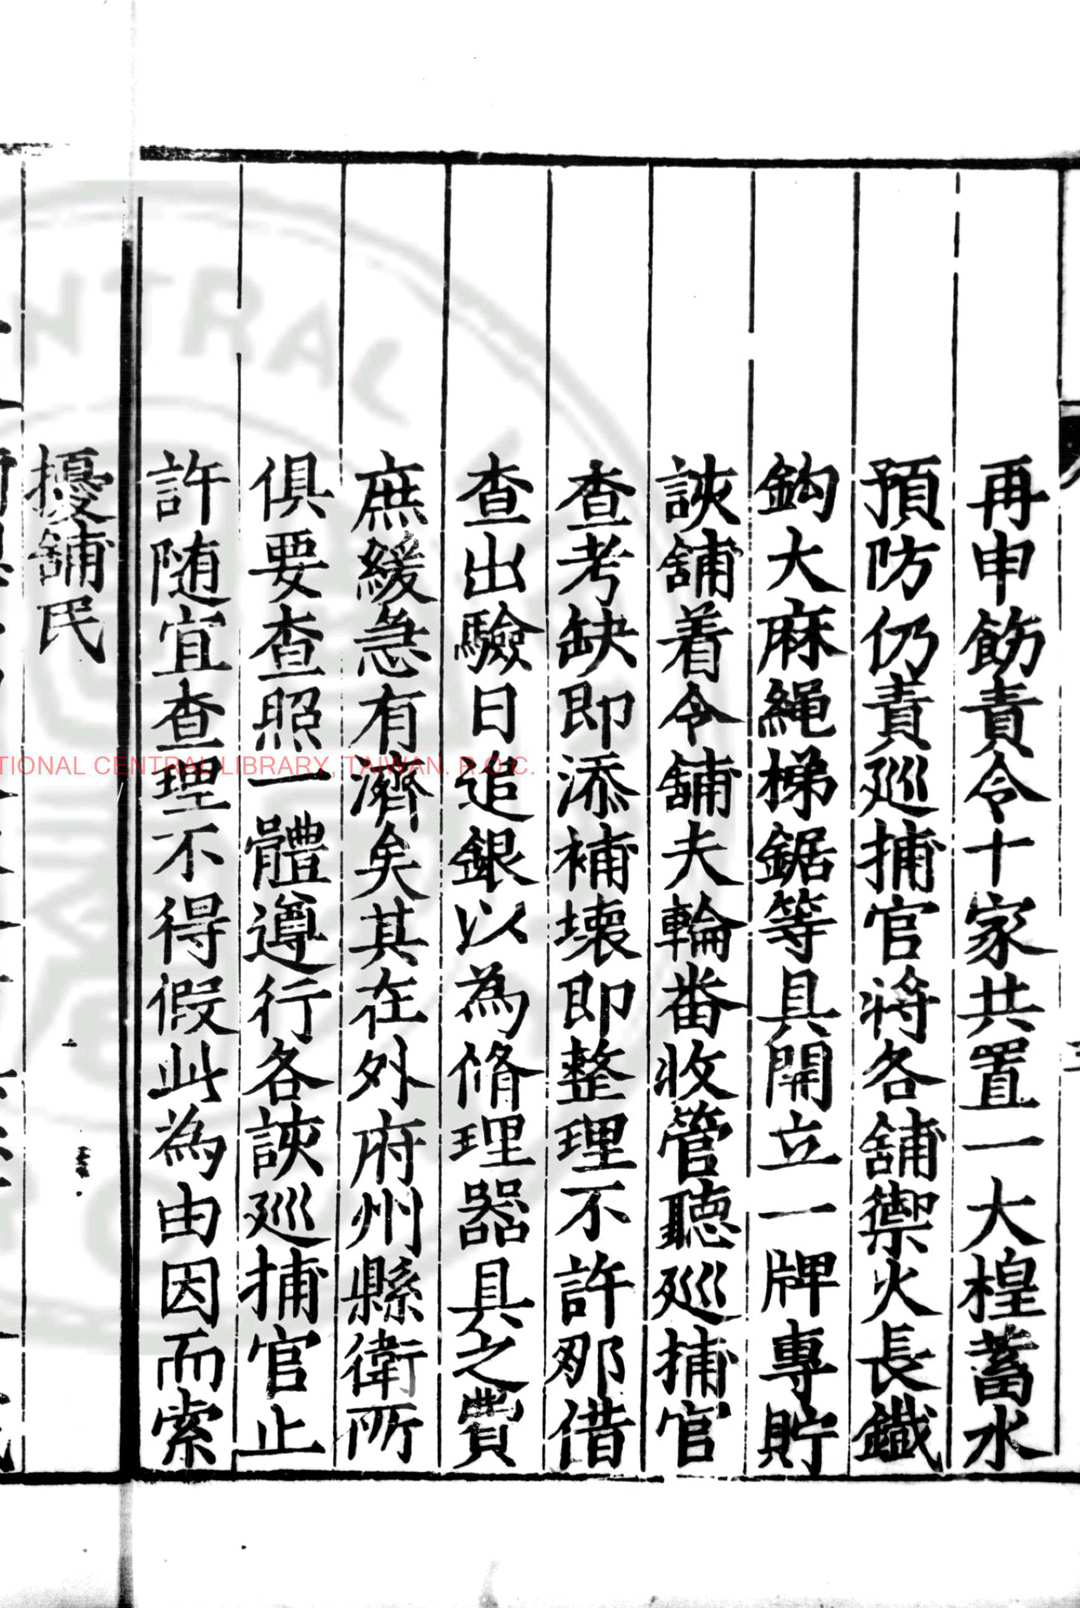 再申飭責令十家共置一大桯蓄水
預防仍責廵捕官將各舖禦火長鐵
鈎大麻繩梯鋸等具開立一牌專貯
該舖着令舖夫輪畨收管聽廵捕官
查考缺即添補壊即整理不許那借
查出驗日追銀以為脩理器具之費
庶緩急有濟矣其在外府州縣衛所
俱要查照一體遵行各該廵捕官止
許随宜查理不得假此為由因而索
擾舖民
TIONAL CENTRAL LIBRARY, TAIWAN. R.O.C.